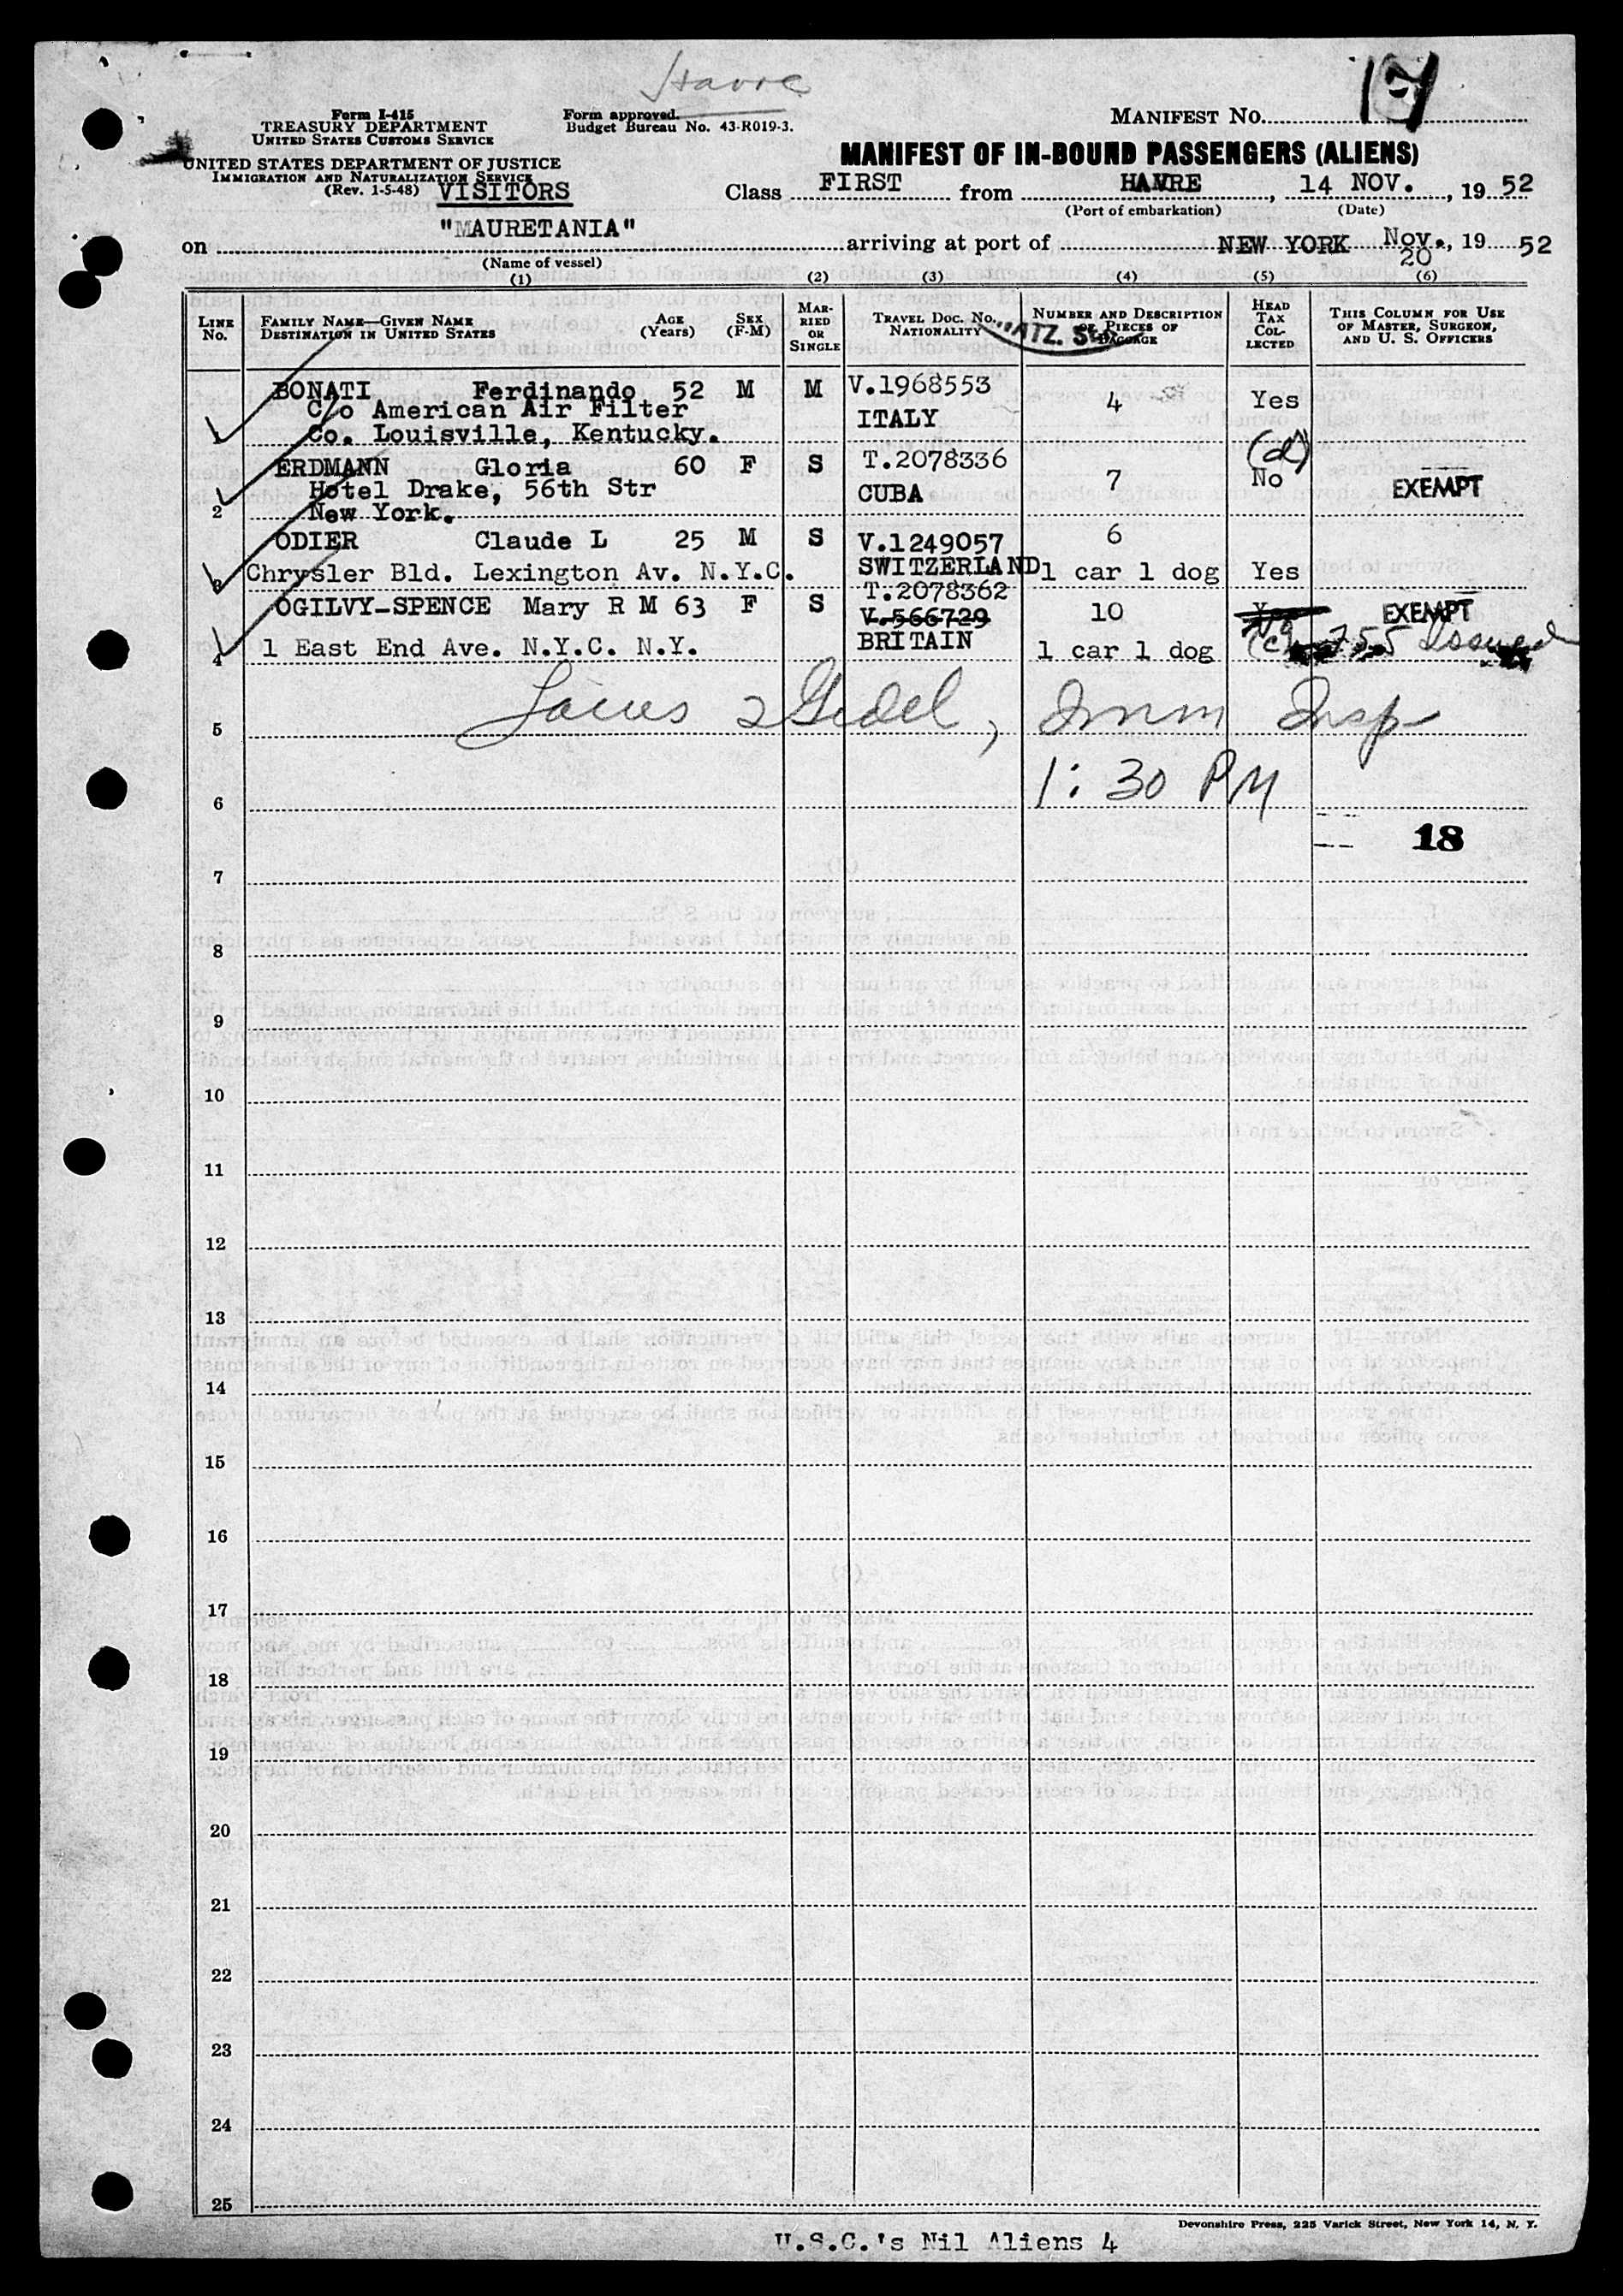 Havre
Form I-415
TREASURY DEPARTMENT
UNITED STATES CUSTOMS SERVICE
Form approved.
Budget Bureau No. 43-R019-3.
MANIFEST No. 17
UNITED STATES DEPARTMENT OF JUSTICE
IMMIGRATION AND NATURALIZATION SERVICE
(Rev. 1-5-48) VISITORS
MANIFEST OF IN-BOUND PASSENGERS (ALIENS)
Class FIRST from HAVRE, 14 NOV., 1952
(Port of embarkation) (Date)
on "MAURETANIA" arriving at port of NEW YORK Nov. 20, 1952
(Name of vessel)
(1) (2) (3) (4) (5) (6)
LINE No. FAMILY NAME—GIVEN NAME DESTINATION IN UNITED STATES AGE (Years) SEX (F-M) MARRIED OR SINGLE TRAVEL DOC. NO. NATIONALITY NUMBER AND DESCRIPTION OF PIECES OF BAGGAGE HEAD TAX COLLECTED THIS COLUMN FOR USE OF MASTER, SURGEON, AND U. S. OFFICERS
BONATI Ferdinando 52 M M V.1968553 4 Yes
C/o American Air Filter ITALY
1 Co. Louisville, Kentucky.
ERDMANN Gloria 60 F S T.2078336 7 (d) No EXEMPT
Hotel Drake, 56th Str CUBA
2 New York.
ODIER Claude L 25 M S V.1249057 6
3 Chrysler Bld. Lexington Av. N.Y.C. SWITZERLAND 1 car 1 dog Yes
T.2078362
OGILVY-SPENCE Mary R M 63 F S V.566729 10 EXEMPT
4 1 East End Ave. N.Y.C. N.Y. BRITAIN 1 car 1 dog No (c) 755 Issued
5 Imm Insp
6 1:30 PM
18
7
8
9
10
11
12
13
14
15
16
17
18
19
20
21
22
23
24
25
Devonshire Press, 225 Varick Street, New York 14, N. Y.
U.S.C.'s Nil Aliens 4